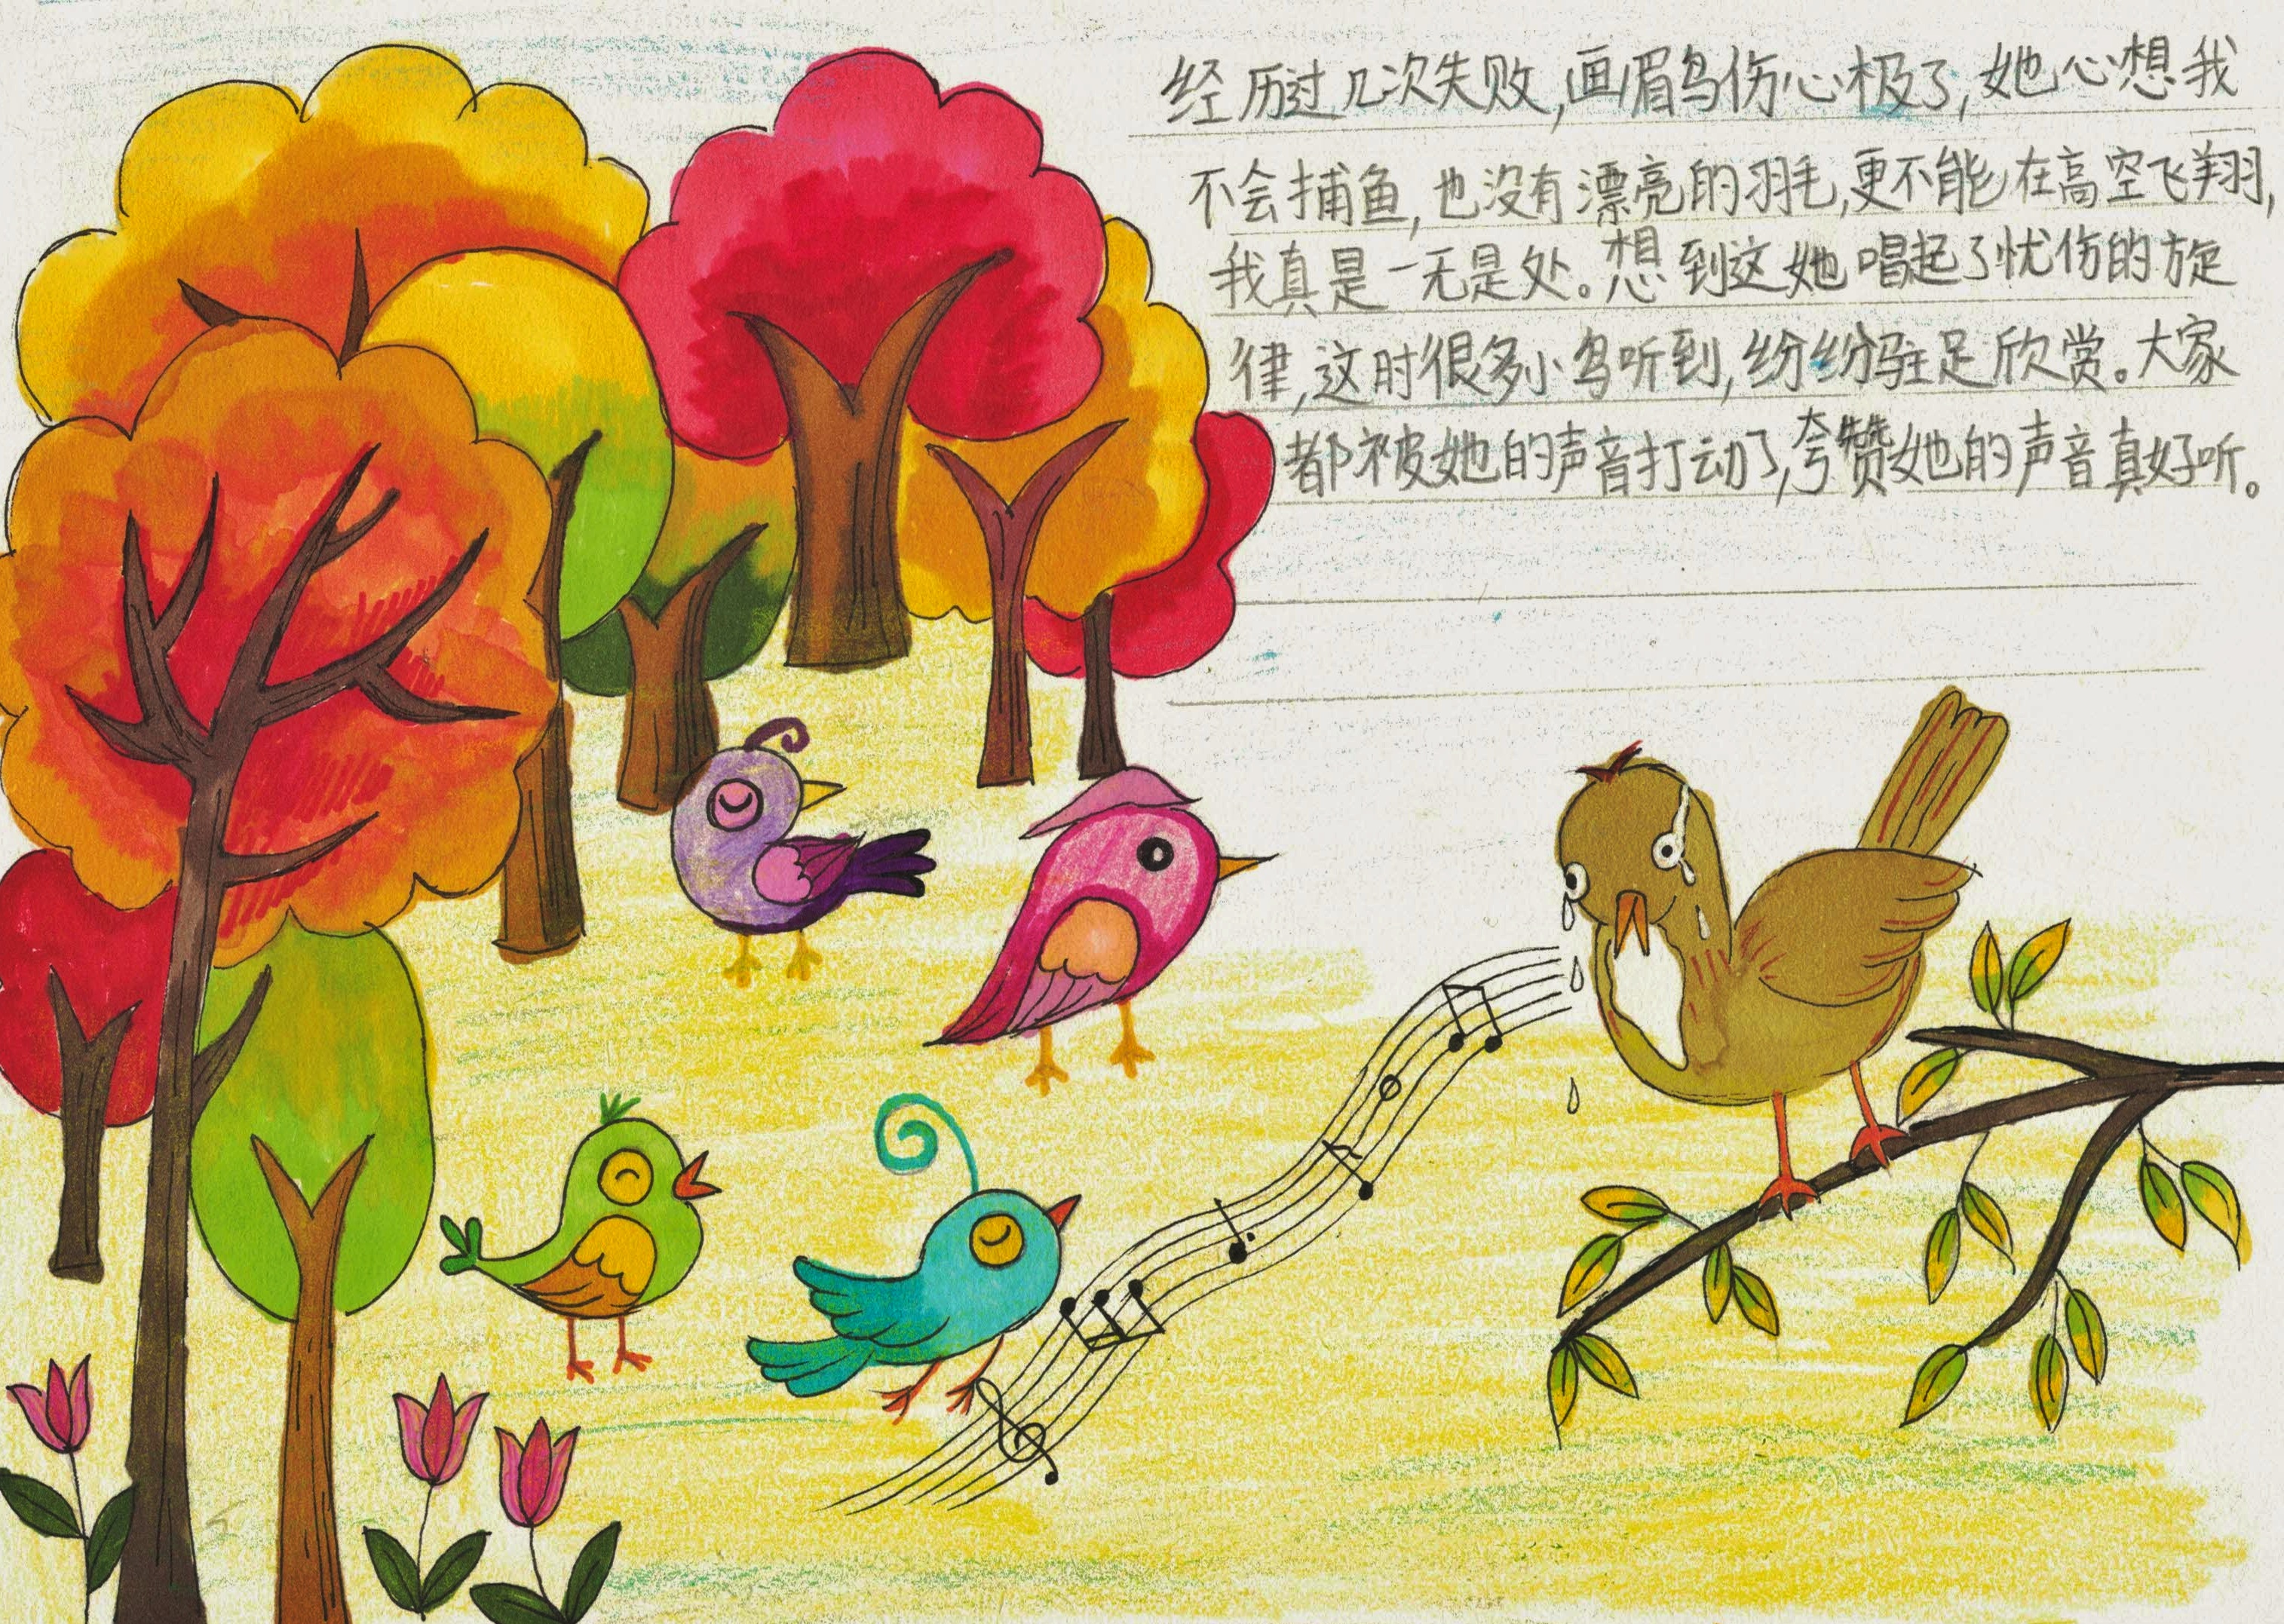 经历过几次失败,画眉鸟伤心极了,她心想我
不会捕鱼,也没有漂亮的羽毛,更不能在高空飞翔,
我真是一无是处。想到这她唱起了忧伤的旋
律,这时很多小鸟听到,纷纷驻足欣赏。大家
都被她的声音打动了,夸赞她的声音真好听。